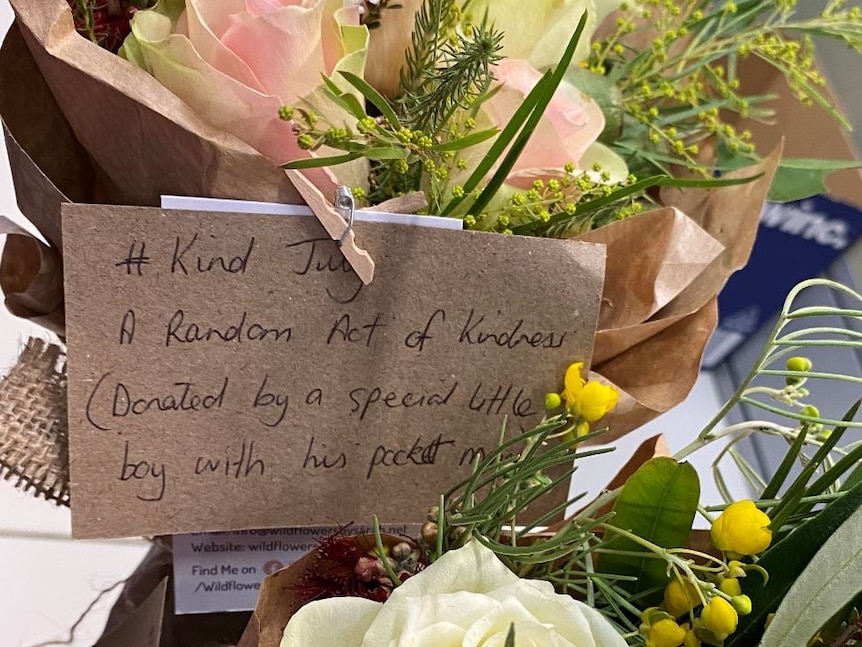 # Kind July
A Random Act of Kindness
(Donated by a special little
boy with his pocket
winc.
Email: info@wildflowersbysarah.net
Website: wildflowers
Find Me on
/Wildflowe